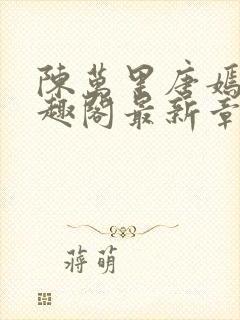 陳萬里唐嫣
趣閣最新章
蔣萌